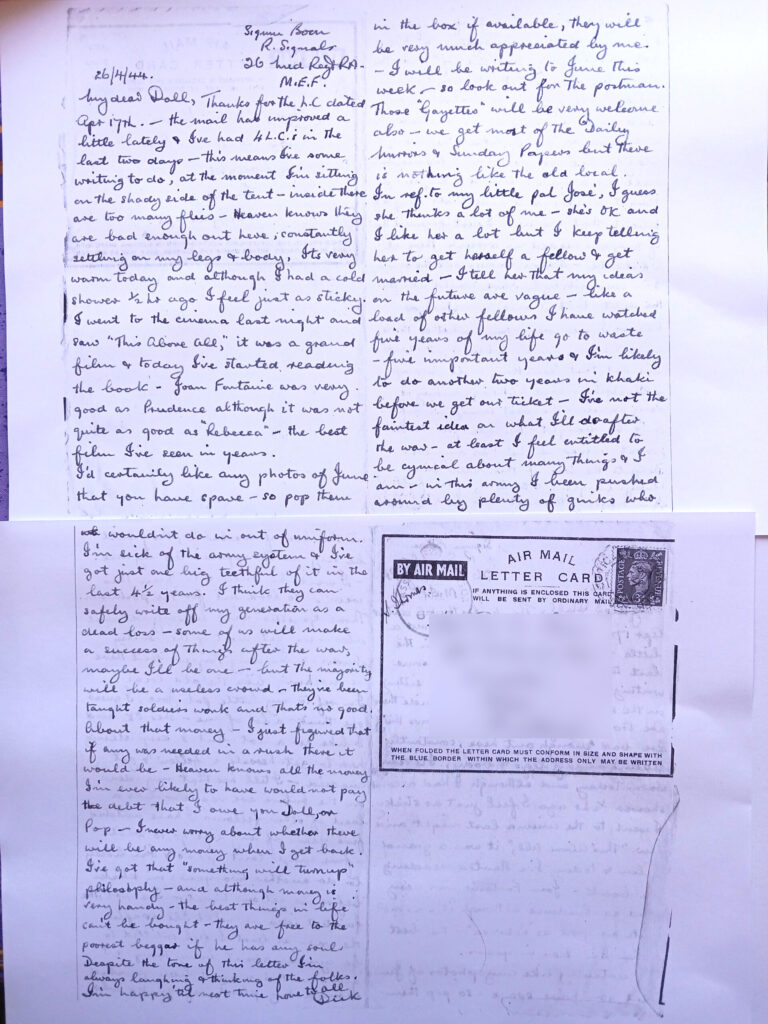 Sigmn Born
R. Signals
26 Med Regt RA-
M.E.F.
26/4/44.
My dear Doll, Thanks for the L.C dated
Apr 17th. - the mail has improved a
little lately & I've had 4 L.C.s in the
last two days - this means I've some
writing to do, at the moment I'm sitting
on the shady side of the tent - inside there
are too many flies - Heaven knows they
are bad enough out here, constantly
settling on my legs & body, Its very
warm today and although I had a cold
shower ½ hr ago I feel just as sticky.
I went to the cinema last night and
saw "This Above All," it was a grand
film & today I've started reading
the book - Joan Fontaine was very
good as Prudence although it was not
quite as good as "Rebecca" - the best
film I've seen in years.
I'd certainly like any photos of June
that you have spare - so pop them
in the box if available, they will
be very much appreciated by me.
- I will be writing to June this
week - so look out for the postman.
Those "Gazettes" will be very welcome
also - we get most of the Dailey
Mirrors & Sunday Papers but there
is nothing like the old local.
In ref. to my little pal José, I guess
she thinks a lot of me - she's OK and
I like her a lot but I keep telling
her to get herself a fellow & get
married - I tell her that my ideas
on the future are vague - like a
load of other fellows I have watched
five years of my life go to waste
- five important years & I'm likely
to do another two years in khaki
before we get our ticket - I've not the
faintest idea on what I'll do after
the war - at least I feel entitled to
be cynical about many things & I
am - in this army I been pushed
around by plenty of guiks who
wouldn't do in out of uniform.
I'm sick of the army system & I've
got just one big teethful of it in the
last 4½ years. I think they can
safely write off my generation as a
dead loss - some of us will make
a success of things after the war,
maybe I'll be one - but the majority
will be a useless crowd - they've been
taught soldiers work and thats no good.
About that money - I just figured that
if any was needed in a rush there it
would be - Heaven knows all the money
I'm ever likely to have would not pay
the debt that I owe you Doll, or
Pop - I never worry about whether there
will be any money when I get back.
I've got that "something will turn up"
philosophy - and although money is
very handy - the best things in life
can't be bought - they are free to the
poorest beggar if he has any soul
Despite the tone of this letter I'm
always laughing & thinking of the folks.
I'm happy 'til next time love to all
Dick
BY AIR MAIL
AIR MAIL
LETTER CARD
IF ANYTHING IS ENCLOSED THIS CARD
WILL BE SENT BY ORDINARY MAIL
POSTAGE
WHEN FOLDED THE LETTER CARD MUST CONFORM IN SIZE AND SHAPE WITH
THE BLUE BORDER WITHIN WHICH THE ADDRESS ONLY MAY BE WRITTEN